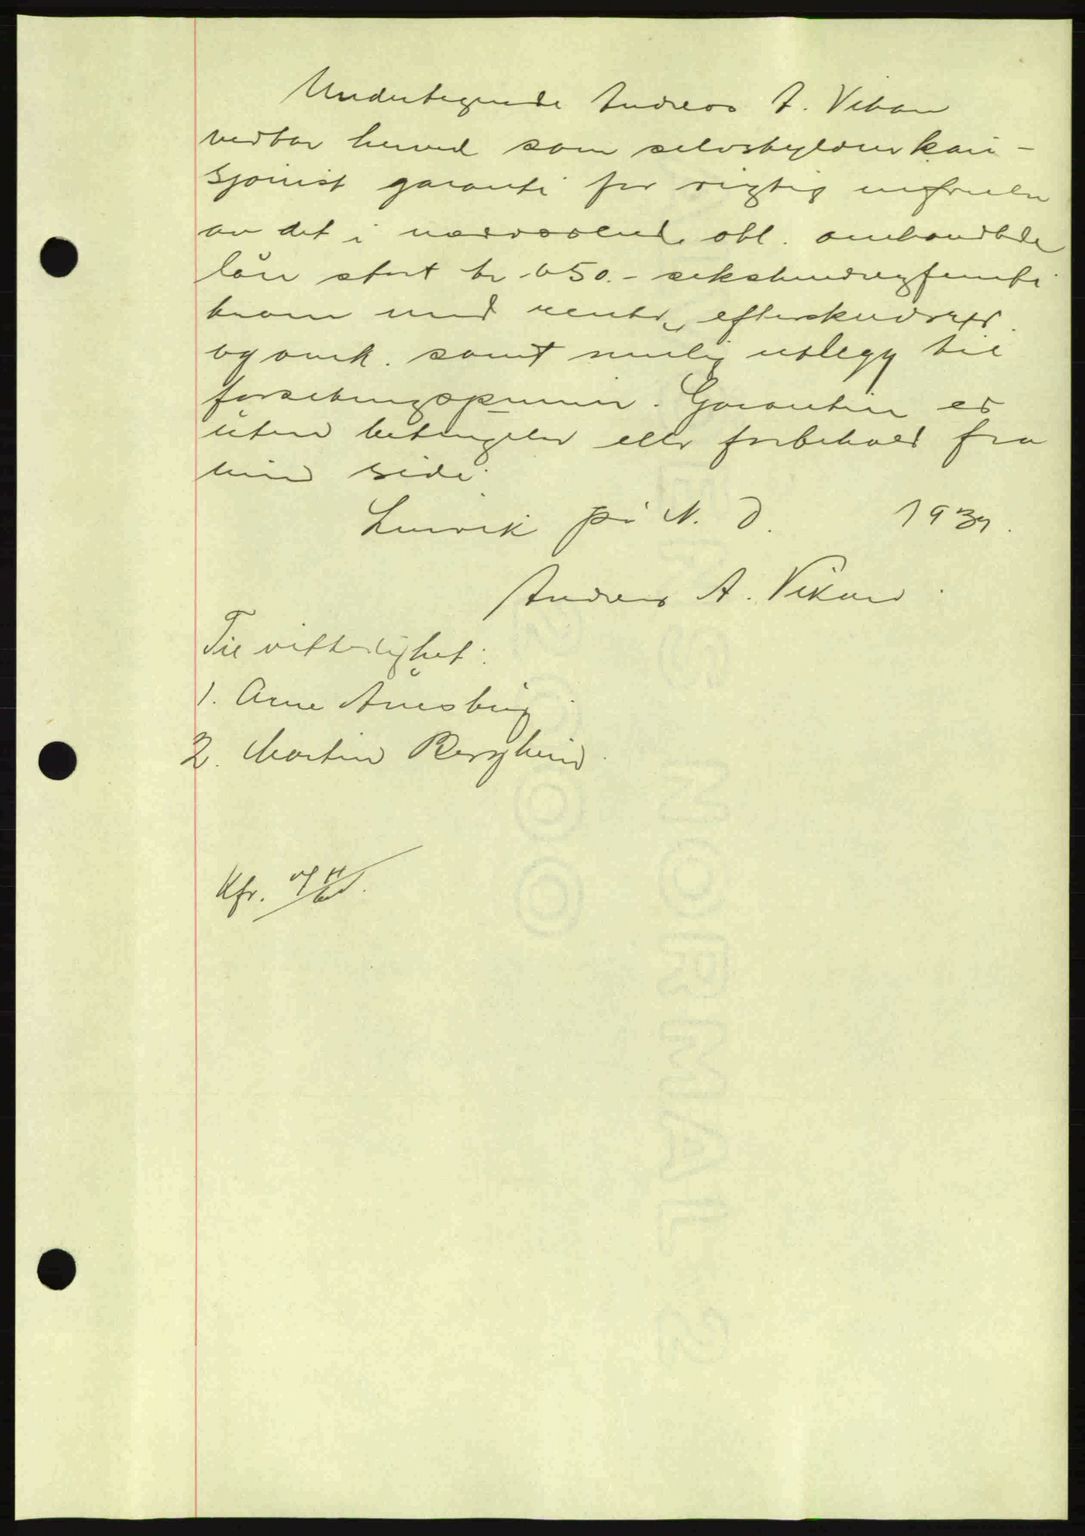 Undertegnede Andreas A. Vikan
vedtar herved som selvskyldnerkau-
sjonist garanti for rigtig
av det i nærværende obl. omhandlede
lån stort kr 650.- sekshundreogfemti
kroner med renter, efterskudsrtr.
og omk. samt mulig utlegg til
forsikringspremier. Garantien er
uten betingelser eller forbehold fra
min side.
på N. D. 1939.
Andreas A. Vikan.
Til vitterlighet:
1. Arne
2. Martin Berghein.
Kfr.
ANKERS NORMAL 2
2000